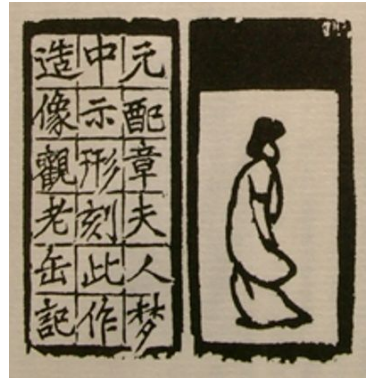 元配章夫人梦
中示形刻此作
造像觀老缶記